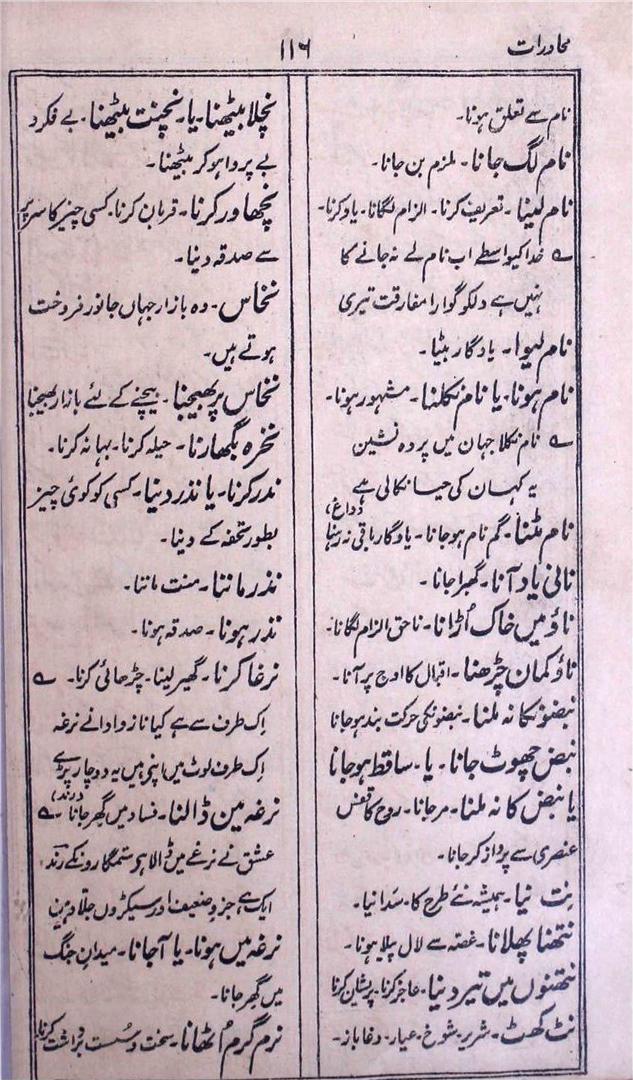 محاورات
۱۱۶
نام سے تعلق ہونا۔
نام لگ جانا۔ ملزم بن جانا۔
نام لینا۔ تعریف کرنا۔ الزام لگانا۔ یاد کرنا۔
؎ خدا کیواسطے اب نام لے نہ جانے کا
نہیں ہے دلکو گوارا مفارقت تیری
نام لیوا۔ یادگار بیٹا۔
نام ہونا۔ یا نام نکلنا۔ مشہور ہونا۔
؎ نام نکلا جہان میں پردہ نشین
یہ کہان کی حیا نکالی ہے
(داغ)
نام مٹنا۔ گم نام ہو جانا۔ یادگار باقی نہ رہنا
نانی یاد آنا۔ گھبرا جانا۔
ناؤ میں خاک اُڑانا۔ ناحق الزام لگانا۔
ناؤ کمان چڑھنا۔ اقبال کا اوج پر آنا۔
نبضونکا نہ ملنا۔ نبضونکی حرکت بند ہو جانا
نبض چھوٹ جانا۔ یا۔ ساقط ہو جانا
یا نبض کا نہ ملنا۔ مر جانا۔ روح کا قفس
عنصری سے پرواز کر جانا۔
نِت نیا۔ ہمیشہ نئے طرح کا۔ سَدا نیا۔
نتھنا پھلانا۔ غصہ سے لال پیلا ہونا۔
نتھنوں میں تیر دینا۔ عاجز کرنا۔ پریشان کرنا
نٹ کھٹ۔ شریر۔ شوخ۔ عیار۔ دغاباز۔
نچلا بیٹھنا۔ یا۔ نچنت بیٹھنا۔ بے فکر و
بے پروا ہو کر بیٹھنا۔
نچھاور کرنا۔ قربان کرنا۔ کسی چیز کا سر پر
سے صدقہ دینا۔
نخاس۔ وہ بازار جہاں جانور فروخت
ہوتے ہیں۔
نخاس پر بھیجنا۔ بیچنے کے لئے بازار بھیجنا
نخرہ بگھارنا۔ حیلہ کرنا۔ بہانہ کرنا۔
نذر کرنا۔ یا نذر دینا۔ کسی کو کوئی چیز
بطور تحفہ کے دینا۔
نذر ماننا۔ منت ماننا۔
نذر ہونا۔ صدقہ ہونا۔
نرغا کرنا۔ گھیر لینا۔ چڑھائی کرنا۔ ؎
اِک طرف سے ہے کیا ناز و ادا نے نرغہ
اِک طرف لوٹ میں اپنی ہیں یہ دو چار پڑے
(رند)
نرغہ مین ڈالنا۔ فساد میں گھر جانا ؎
عشق نے نرغے میں ڈالا ہر ستمگارونکے رند
ایک ہے جزو ضعیف اور سیکڑوں جلاد ہین
نرغہ میں ہونا۔ یا آ جانا۔ میدان جنگ
میں گھر جانا۔
نرم گرم اُٹھانا۔ سخت و سست برداشت کرنا۔